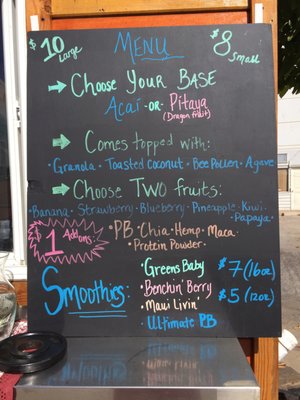 $10 Large
MENU
$8 Small
→ Choose Your Base
Acai -or- Pitaya
(Dragon fruit)
→ Comes topped with:
• Granola • Toasted Coconut • Bee Pollen • Agave
→ Choose Two fruits:
• Banana • Strawberry • Blueberry • Pineapple • Kiwi
• Papaya
$1 Add ons:
• PB • Chia • Hemp • Maca
• Protein Powder
Smoothies:
• Greens Baby
• Benchin' Berry
• Maui Livin'
• Ultimate PB
$7 (16oz)
$5 (12oz)